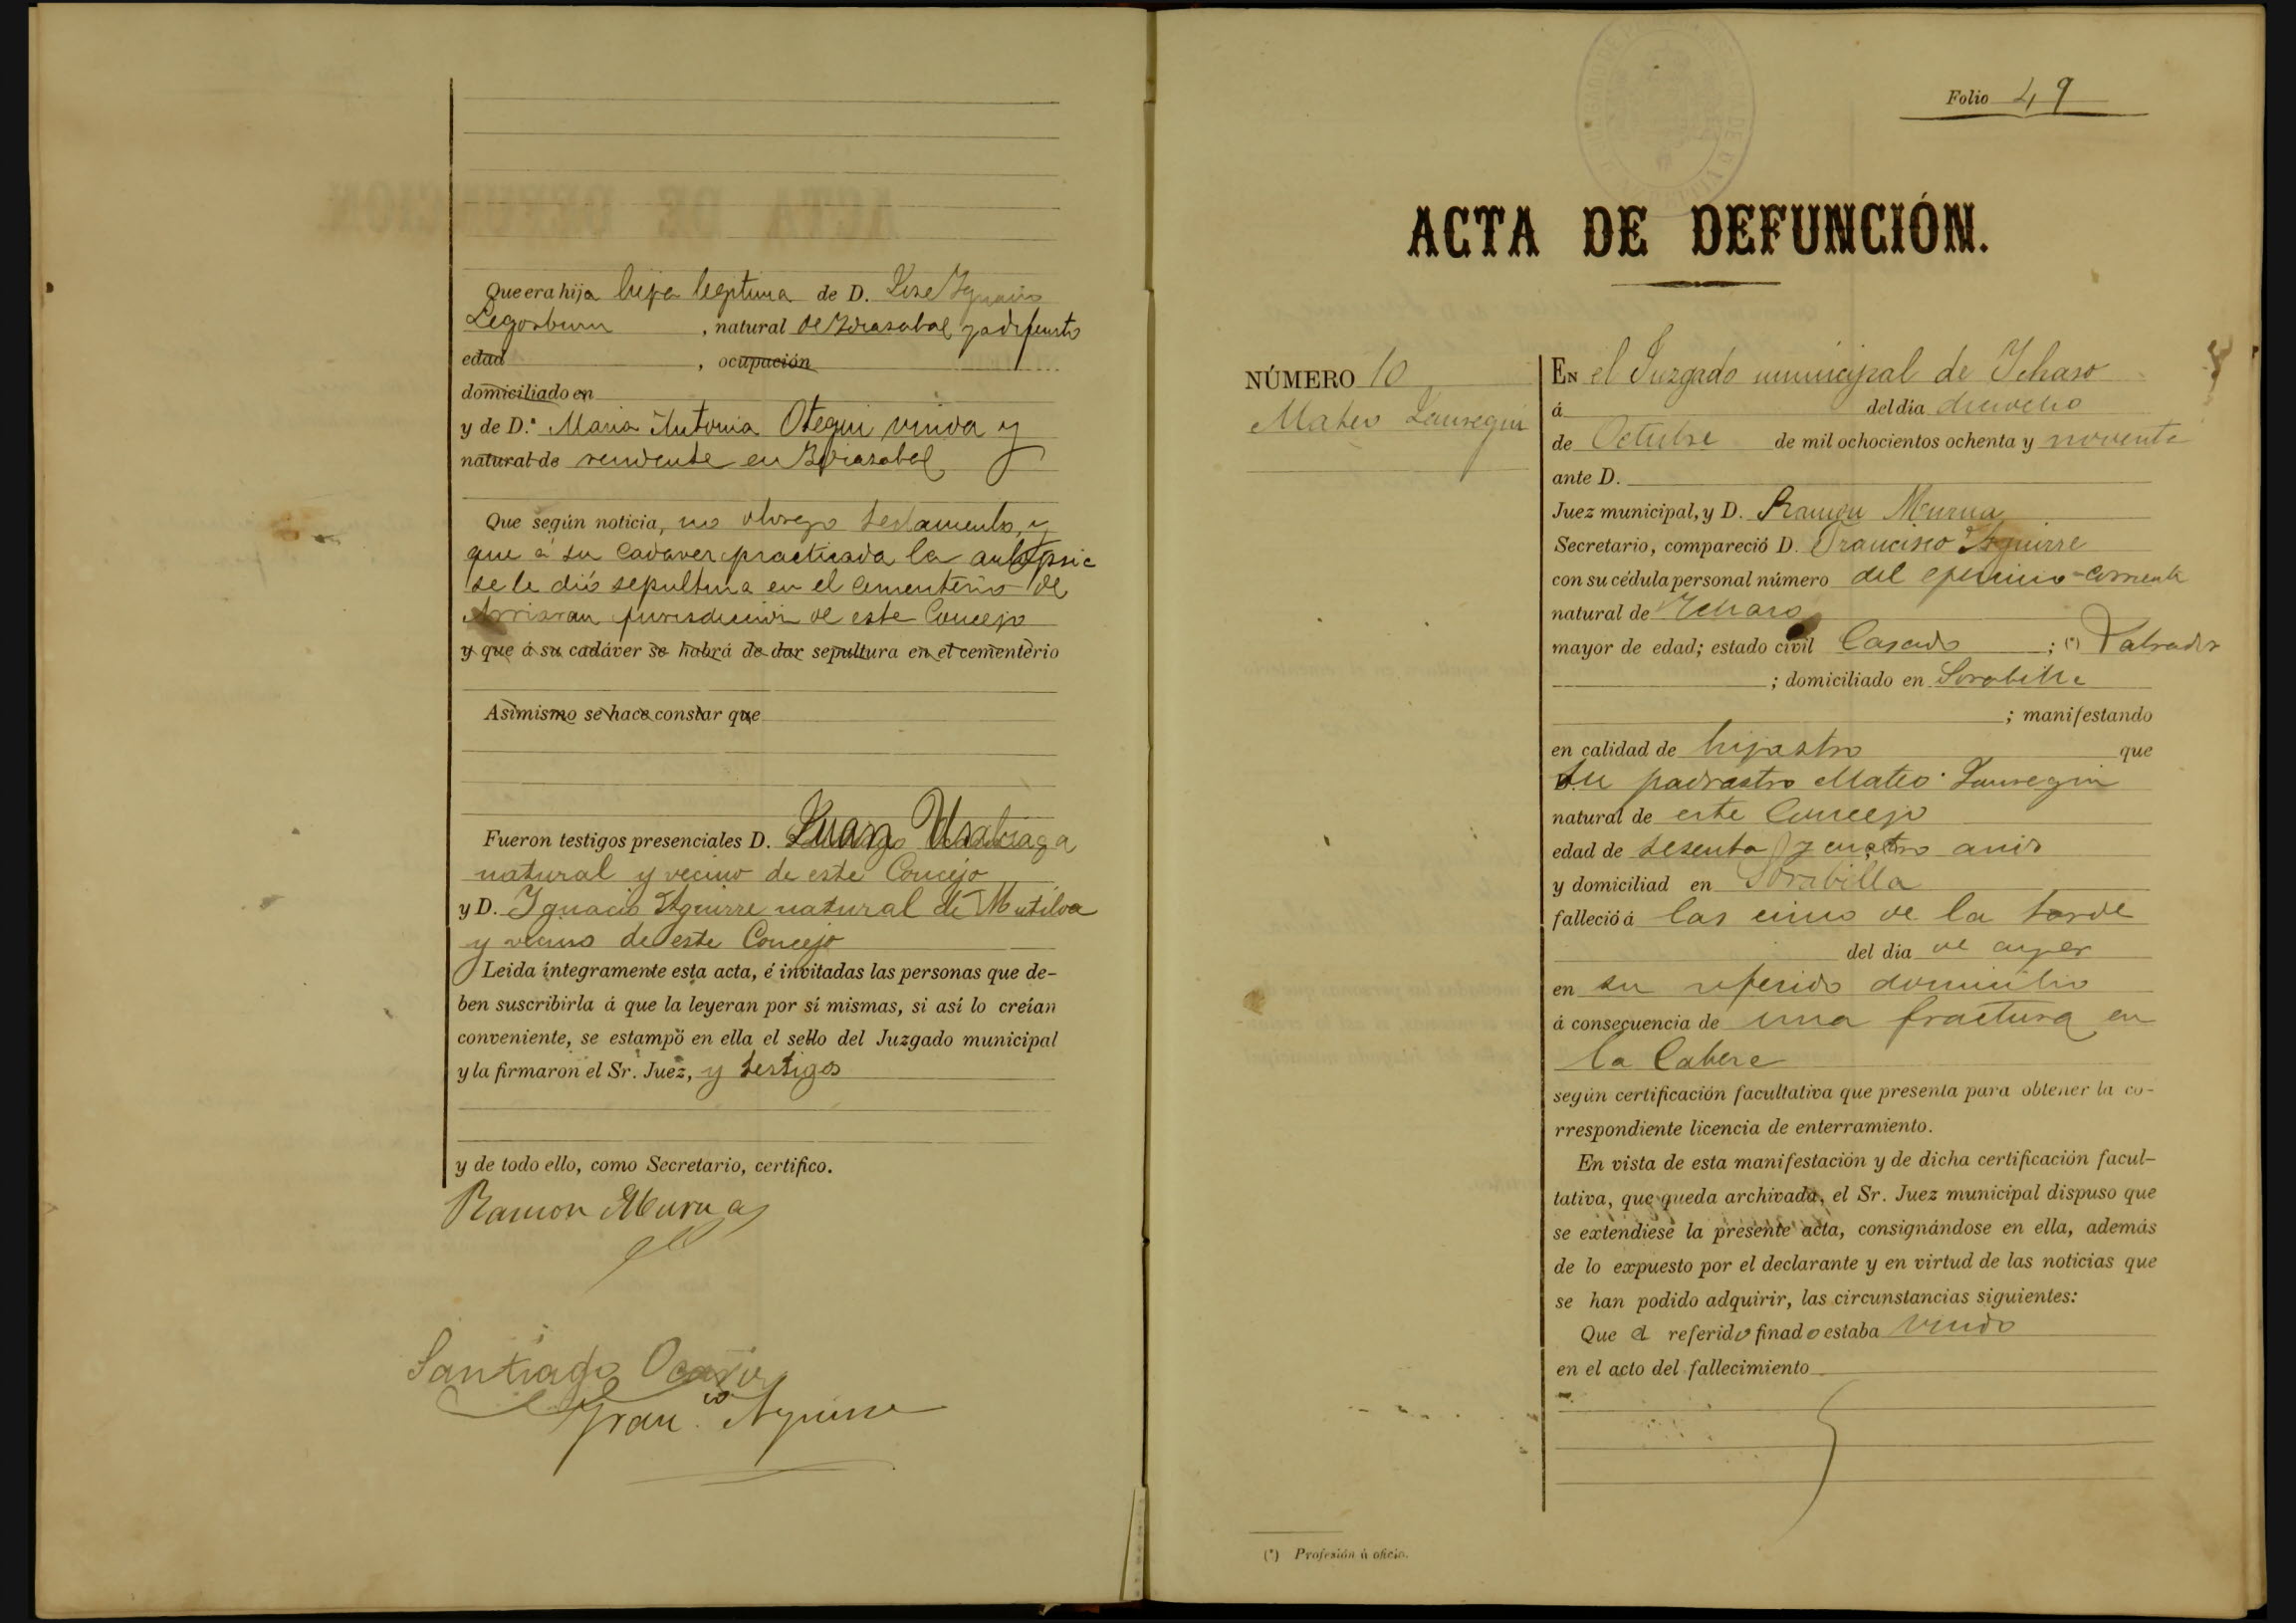 Que era hija hija legitima de D. Jose Ygnacio
Legorburu , natural de Ydiazabal ya difunto
edad , ocupación
domiciliado en
y de D.ª Maria Antonia Otegui viuda y
natural de residente en Ydiazabal
Que según noticia, no otorgo testamento, y
que á su cadaver practicada la autopsia
se le dió sepultura en el cementerio de
Arriaran jurisdiccion de este Concejo
y que á su cadáver se habrá de dar sepultura en el cementerio
Asimismo se hace constar que
Fueron testigos presenciales D. Juan Usabiaga
natural y vecino de este Concejo
y D. Ygnacio Aguirre natural de Mutiloa
y vecino de este Concejo
Leida íntegramente esta acta, é invitadas las personas que de-
ben suscribirla á que la leyeran por sí mismas, si así lo creían
conveniente, se estampó en ella el sello del Juzgado municipal
y la firmaron el Sr. Juez, y testigos
y de todo ello, como Secretario, certifico.
Ramon Murua
Santiado
Fran.co Aguirre
Folio 49
ACTA DE DEFUNCIÓN.
NÚMERO 10
Mateo Jauregui
EN el Juzgado municipal de Ychaso
á del dia dieciocho
de Octubre de mil ochocientos ochenta y noventa
ante D.
Juez municipal, y D. Ramon Murua
Secretario, compareció D. Francisco Aguirre
con su cédula personal número del ejercicio corriente
natural de Ychaso
mayor de edad; estado civil Casado ; (*) Labrador
; domiciliado en Sorabilla
; manifestando
en calidad de hijastro que
D. Su padrastro Mateo Jauregui
natural de este Concejo
edad de sesenta y cuatro años
y domiciliad en Sorabilla
falleció á las cinco de la tarde
del dia de ayer
en su referido domicilio
á consecuencia de una fractura en
la Cabeza
según certificación facultativa que presenta para obtener la co-
rrespondiente licencia de enterramiento.
En vista de esta manifestación y de dicha certificación facul-
tativa, que queda archivada, el Sr. Juez municipal dispuso que
se extendiese la presente acta, consignándose en ella, además
de lo expuesto por el declarante y en virtud de las noticias que
se han podido adquirir, las circunstancias siguientes:
Que el referido finado estaba viudo
en el acto del fallecimiento
(*) Profesión ú oficio.